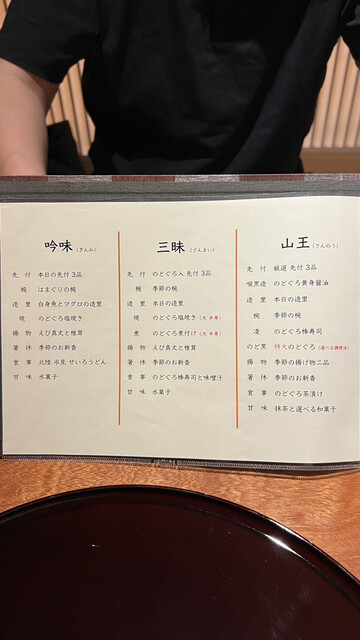 吟味(ぎんみ)
先 付 本日の先付 3品
椀 はまぐりの椀
造 里 白身魚とマグロの造里
焼 のどぐろ塩焼き
揚 物 えび真丈と椎茸
箸 休 季節のお新香
食 事 北陸 氷見 せいろうどん
甘 味 水菓子
三昧(ざんまい)
先 付 のどぐろ入 先付 3品
椀 季節の椀
造 里 本日の造里
焼 のどぐろ塩焼き(大 半身)
煮 のどぐろ煮付け(大 半身)
揚 物 えび真丈と椎茸
箸 休 季節のお新香
食 事 のどぐろ棒寿司と味噌汁
甘 味 水菓子
山王(さんのう)
先 付 厳選 先付 3品
喉黒造 のどぐろ黄身醤油
造 里 本日の造里
椀 季節の椀
凌 のどぐろ棒寿司
のど黒 特大のどぐろ(選べる調理法)
揚 物 季節の揚げ物二品
箸 休 季節のお新香
食 事 のどぐろ茶漬け
甘 味 抹茶と選べる和菓子